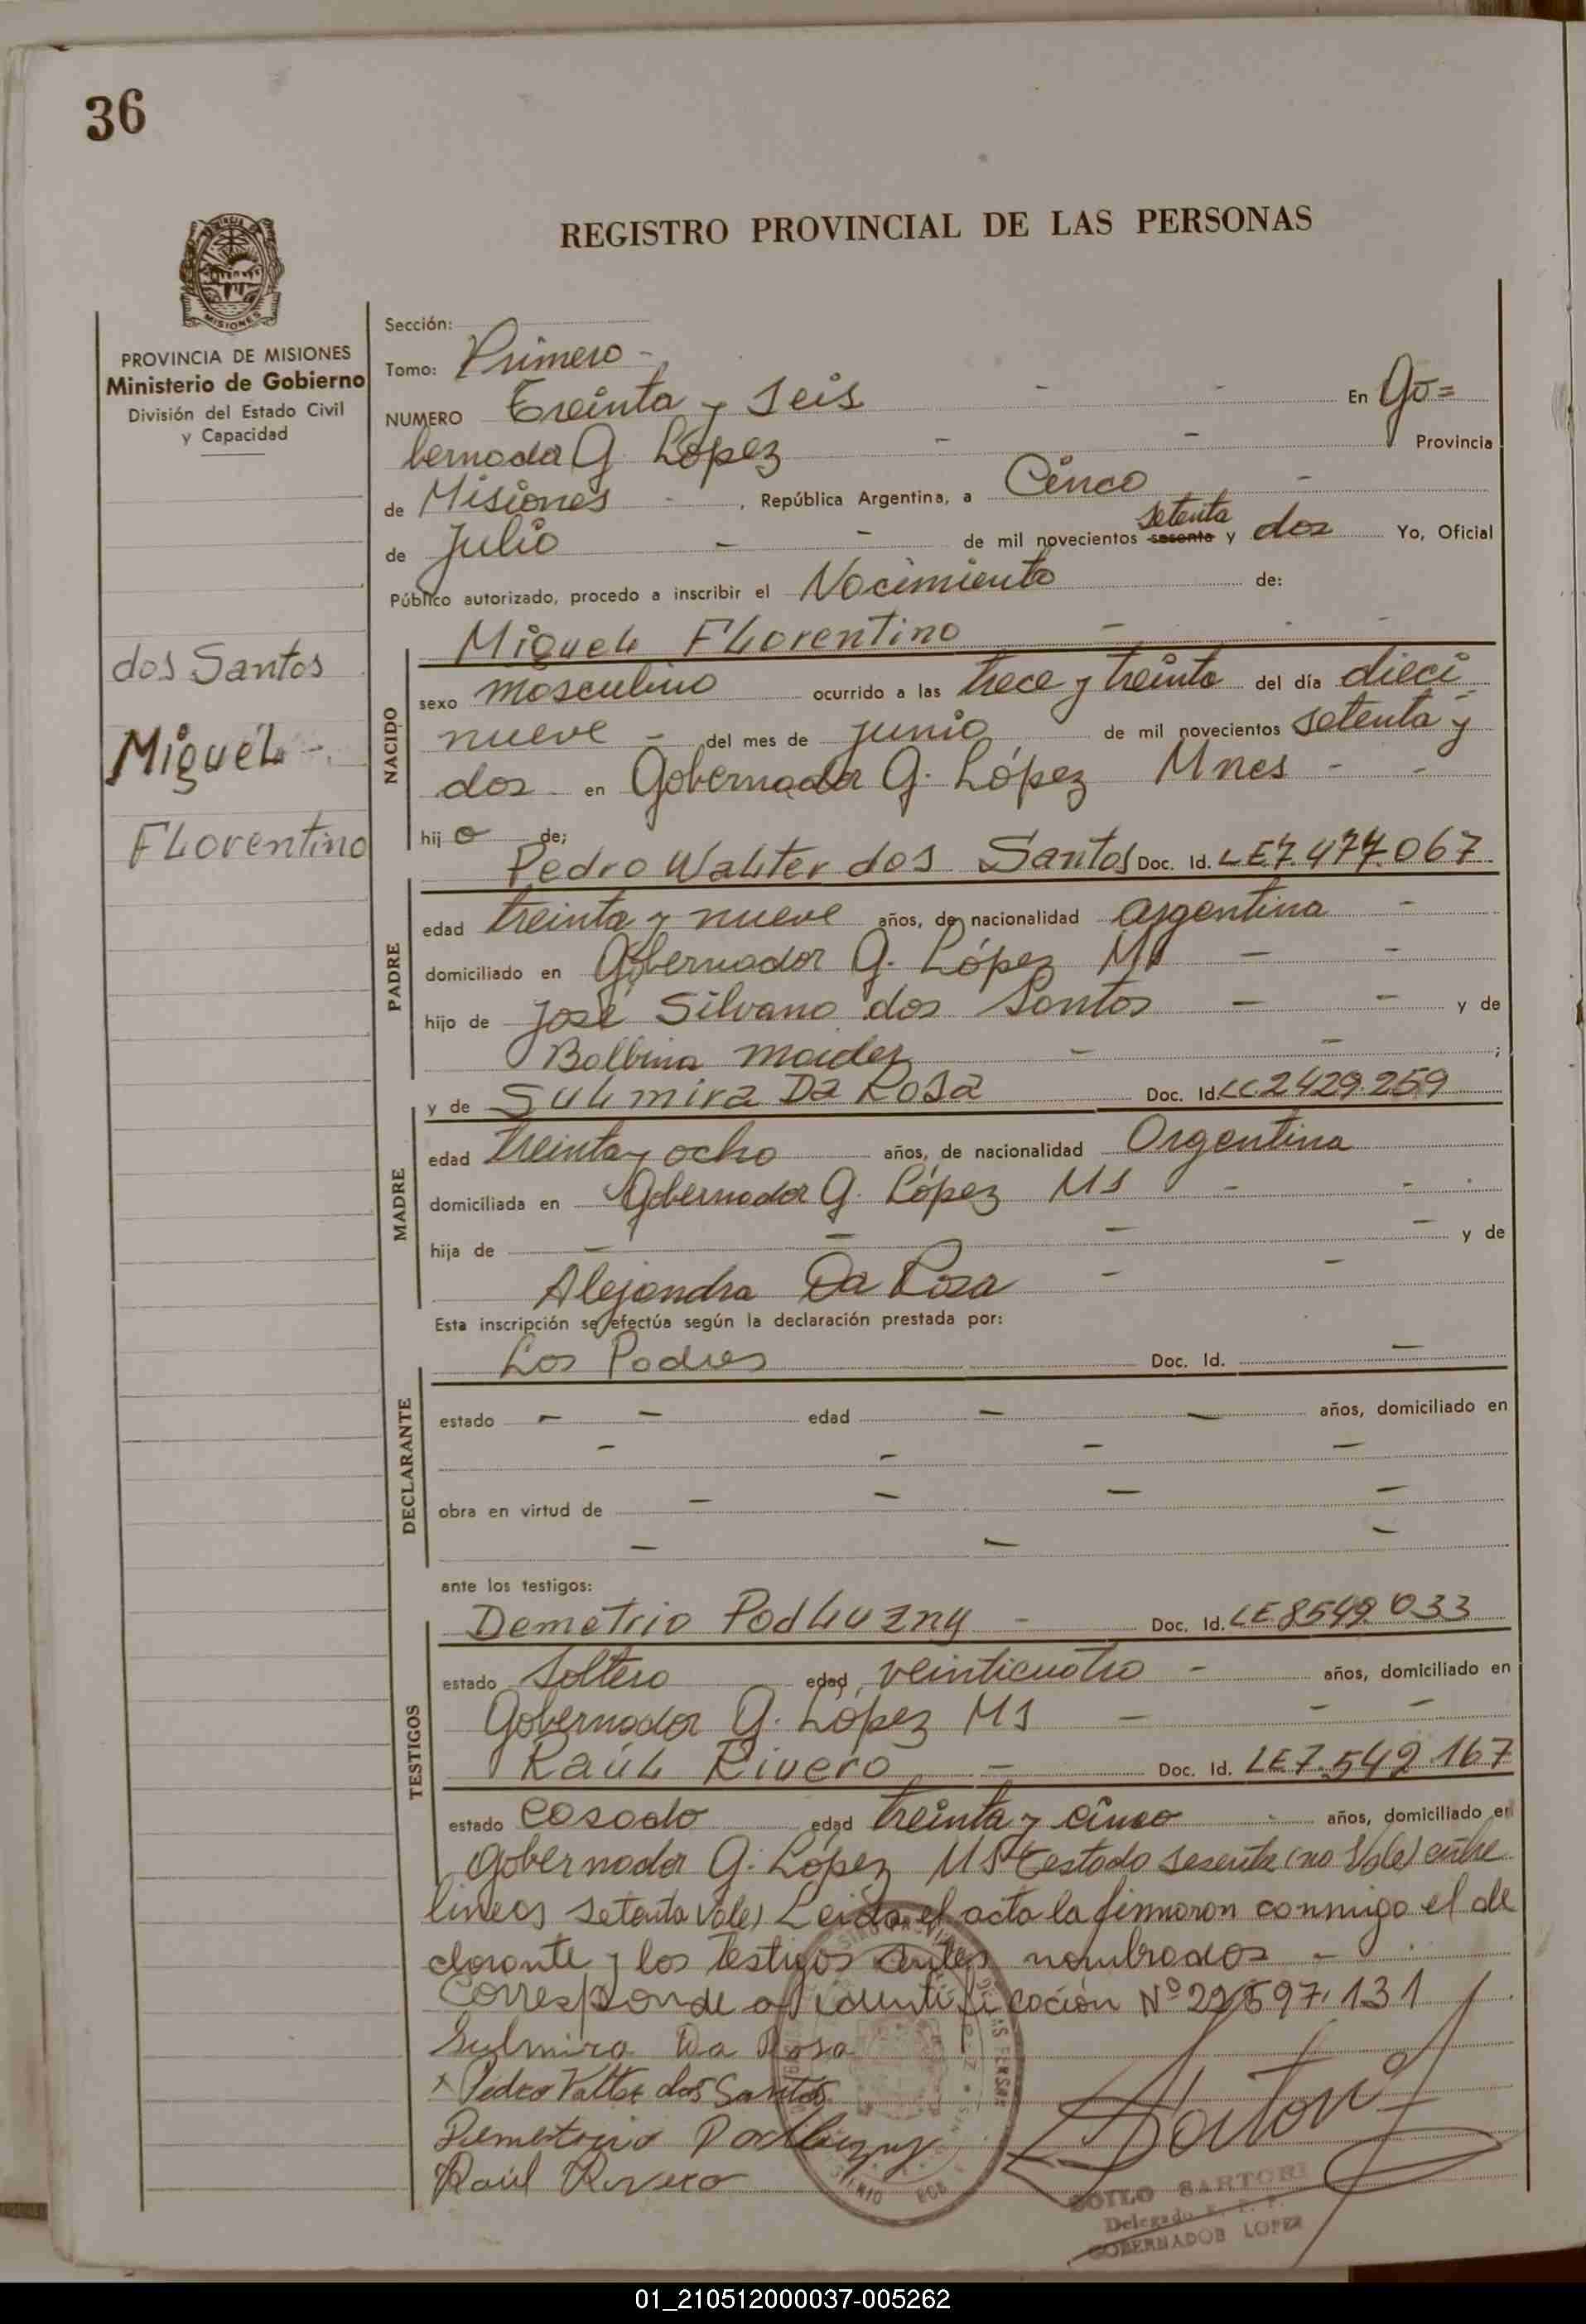 36
REGISTRO PROVINCIAL DE LAS PERSONAS
MISIONES
PROVINCIA DE MISIONES
Ministerio de Gobierno
División del Estado Civil
y Capacidad
dos Santos
Miguel -
Florentino
Sección:
Tomo: Primero -
NUMERO Treinta y Seis - - En Go=
bernador G. López - - Provincia
de Misiones - , República Argentina, a Cinco -
de Julio - - de mil novecientos sesenta setenta y dos Yo, Oficial
Público autorizado, procedo a inscribir el Nacimiento de:
NACIDO
Miguel Florentino - - -
sexo masculino ocurrido a las trece y treinta del día dieci
nueve - del mes de junio de mil novecientos setenta y
dos en Gobernador G. López Mnes - -
hijo de;
PADRE
Pedro Walter dos Santos Doc. Id. LE7.477.067
edad treinta y nueve años, de nacionalidad argentina -
domiciliado en Gobernador G. López Ms - -
hijo de José Silvano dos Santos - - y de
Balbina maidez - - ;
MADRE
y de Sulmira Da Rosa Doc. Id. LC.2429.259
edad treinta y ocho años, de nacionalidad Argentina
domiciliada en Gobernador G. López Ms - - -
hija de - - - - y de
Alejandra Da Rosa - -
Esta inscripción se efectúa según la declaración prestada por:
DECLARANTE
Los Padres Doc. Id. -
estado - - edad - - años, domiciliado en
- - - -
obra en virtud de - - - -
- - -
ante los testigos:
TESTIGOS
Demetrio Podluzny - Doc. Id. LE8549033
estado Soltero edad veinticuatro - años, domiciliado en
Gobernador G. López Ms - - -
Raúl Rivero - Doc. Id. LE7.542.167
estado Casado edad treinta y cinco - años, domiciliado en
Gobernador G. López Ms Testado sesenta (no Vale) entre
lineas setenta Vale) Leida el acta la firmaron conmigo el de
clarante y los testigos antes nombrados -
Corresponde a identificación Nº 22,597,131
Sulmira Da Rosa
x Pedro Valter dos Santos
Demetrio Podluzny
Raúl Rivero
Sartori
ZOILO SARTORI
Delegado R. P. P.
GOBERNADOR LOPEZ
01_210512000037-005262